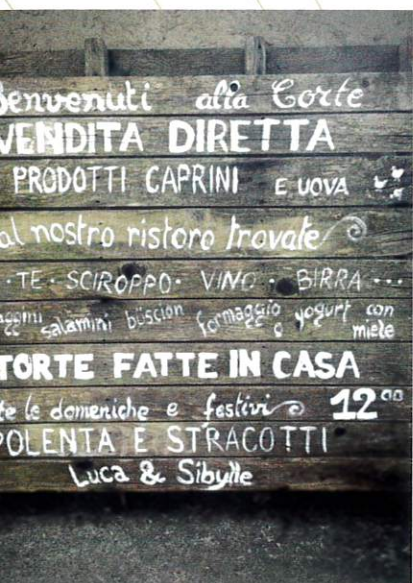 Benvenuti alla Corte
VENDITA DIRETTA
PRODOTTI CAPRINI E UOVA
al nostro ristoro trovate
· TE · SCIROPPO · VINO · BIRRA ...
salamini büscion formaggio yogurt con
miele
TORTE FATTE IN CASA
le domeniche e festivi 12 00
POLENTA E STRACOTTI
Luca & Sibylle